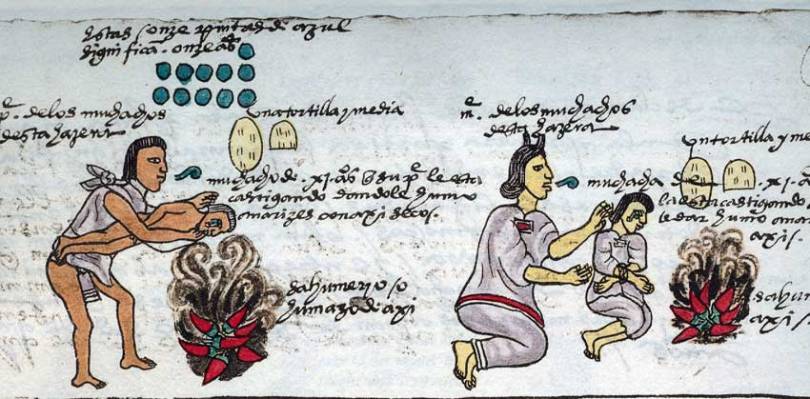 estas onze pintas de azul
significa. onze aºs
pe. de los muchachos
desta hazera
una tortilla y media
muchacho de. XI. aºs q su pe le esta
castigando dandole humo
a narizes con axi secos.
sahumerio o
humazo de axi
me. de los muchachos
desta hazera
un tortilla y me
muchacha de. XI. a
la esta castigando
le dar humo a nar
axi s.
sahum
axi s